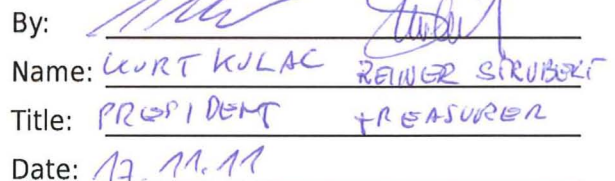 By:
Name: KURT KULAC REINER STRUBERT
Title: PRESIDENT TREASURER
Date: 17.11.11